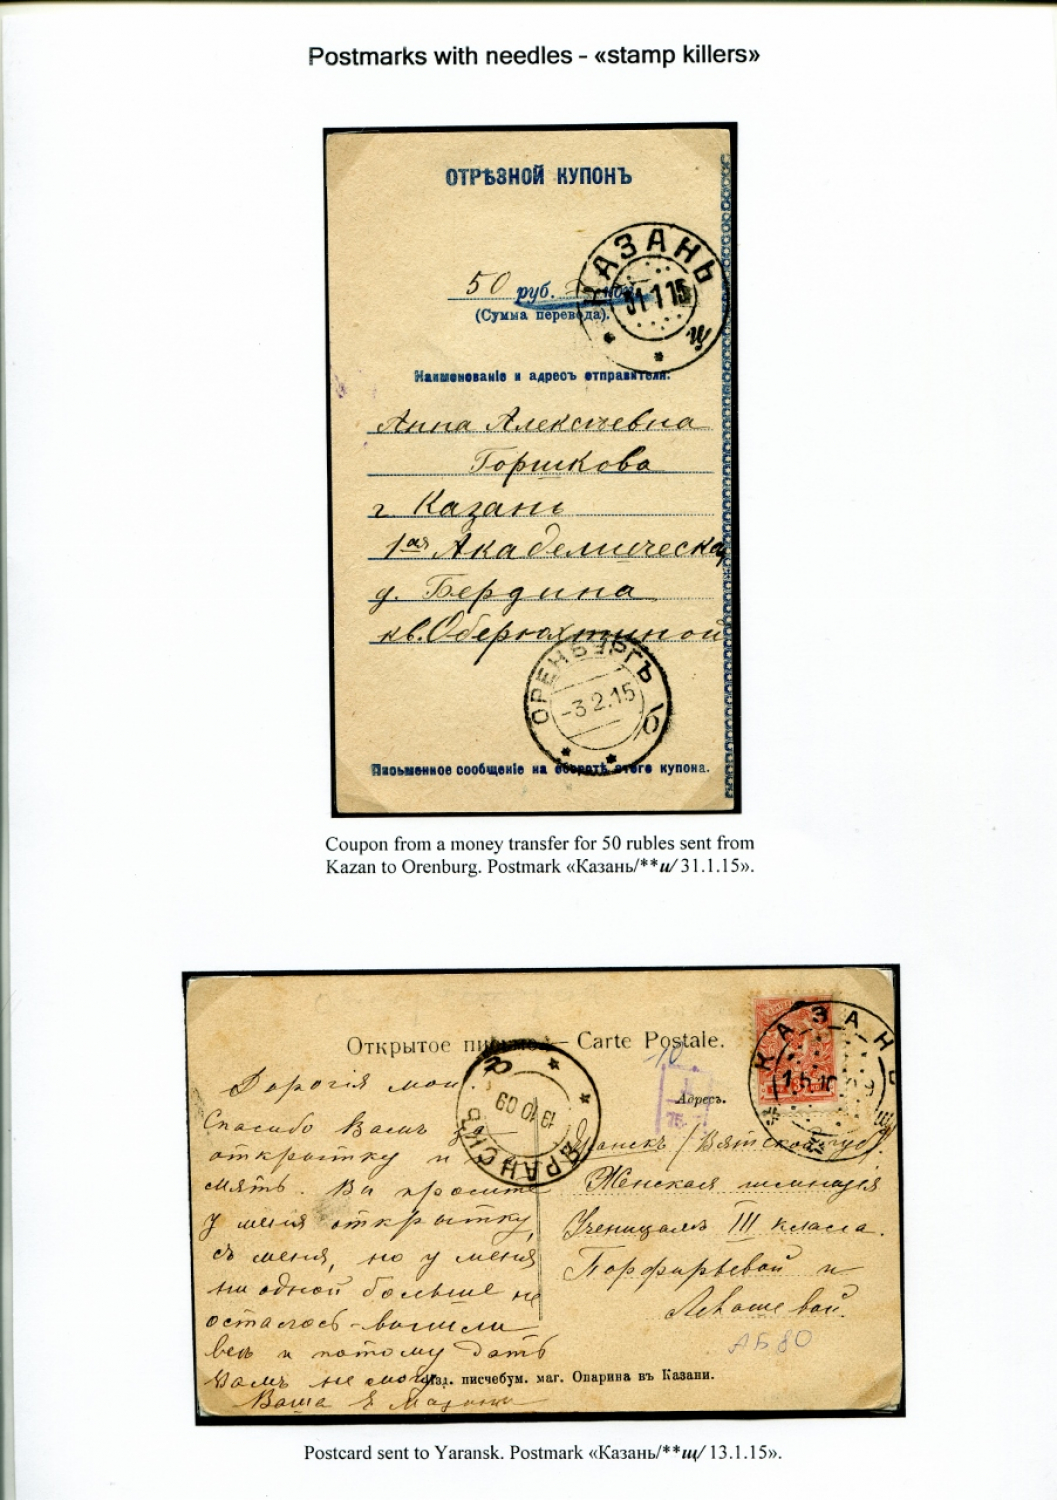 Postmarks with needles – «stamp killers»
ОТРѢЗНОЙ КУПОНЪ
50 руб.
(Сумма перевода).
КАЗАНЬ
31 1 15
Наименованіе и адресъ отправителя.
Анна Алексѣевна
Горшкова
г. Казань
1ая Академическая
д. Бердина
кв. Оберюхтиной
ОРЕНБУРГЪ
-3.2.15
Письменное сообщеніе на оборотѣ этого купона.
Coupon from a money transfer for 50 rubles sent from
Kazan to Orenburg. Postmark «Казань/**и/ 31.1.15».
Открытое письмо. – Carte Postale.
КАЗАНЬ
ЯРАНСКЪ
13 10 09
Адресъ.
Дорогія мои.
Спасибо Вамъ за
открытку и
мять. Вы просите
у меня открытку,
съ меня, но у меня
ни одной больше не
осталось – вышли
всѣ и потому дать
Вамъ не могу.
Ваша Е
Яранскъ / Вятской губ.
Женская гимназія
Ученицамъ III класса.
Порфирьевой и
Левашевой.
АБ80
Изд. писчебум. маг. Опарина въ Казани.
Postcard sent to Yaransk. Postmark «Казань/**щ/ 13.1.15».